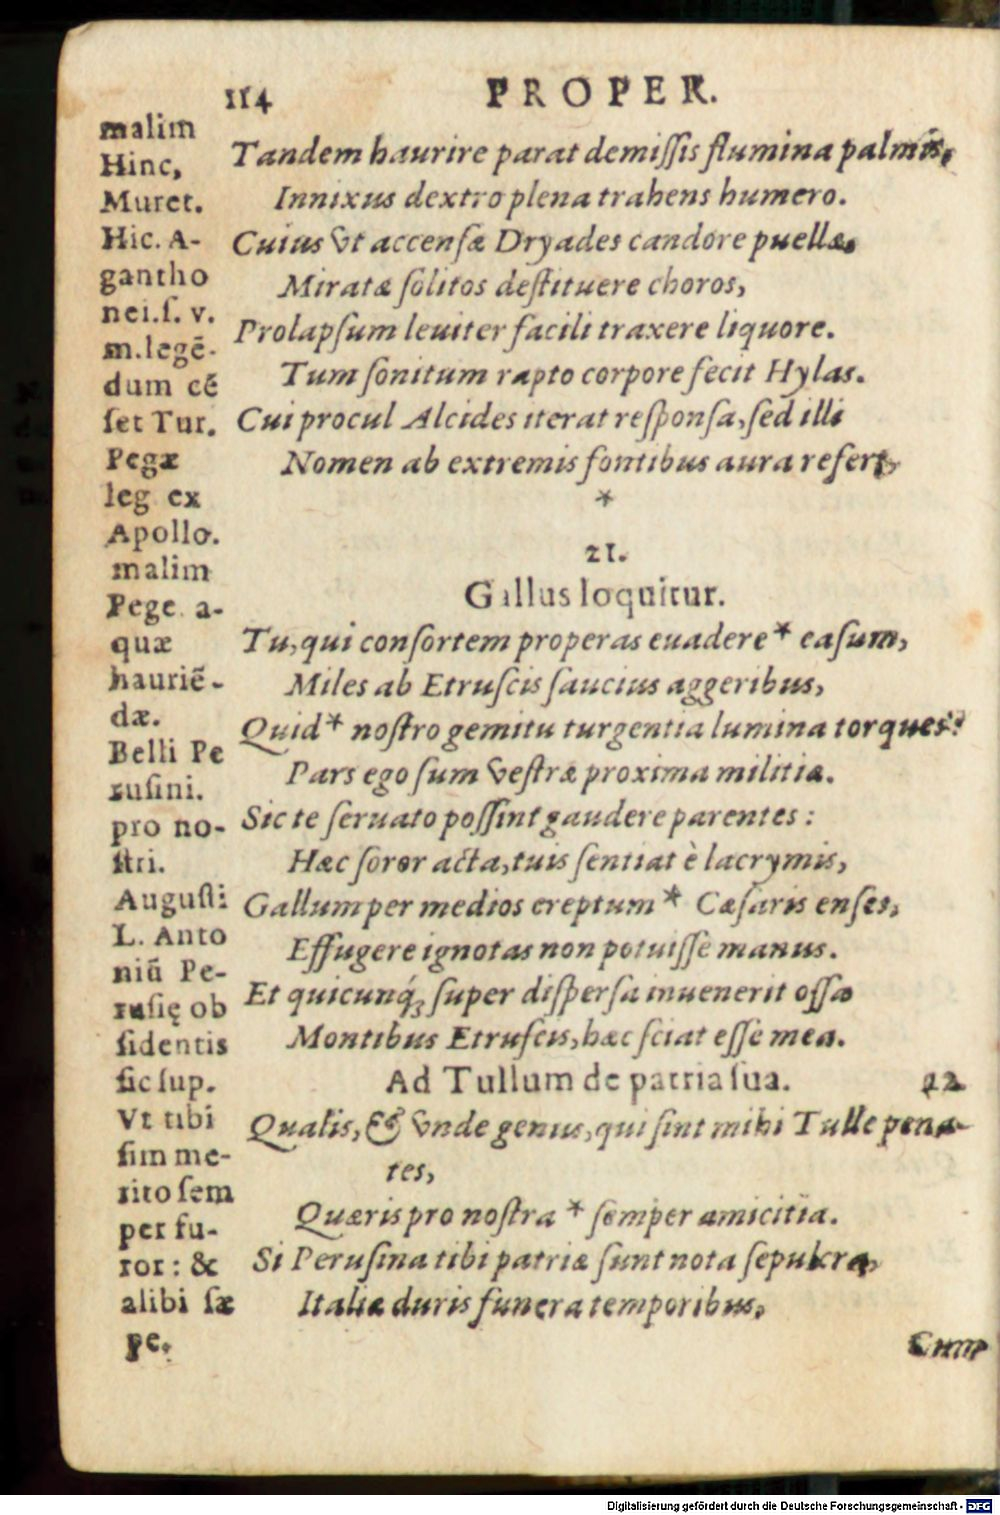 114 PROPER.
malim
Hinc,
Muret.
Hic. A-
gantho
nei.ſ. v.
m.legẽ-
dum cẽ
ſet Tur.
Pegæ
leg ex
Apollo.
malim
Pege a-
quæ
hauriẽ-
dæ.
Belli Pe
ruſini.
pro no-
ſtri.
Auguſti
L. Anto
niũ Pe-
ruſię ob
ſidentis
ſic ſup.
Vt tibi
ſim me-
rito ſem
per fu-
ror: &
alibi ſæ
pe.
Tandem haurire parat demiſſis flumina palmis,
Innixus dextro plena trahens humero.
Cuius vt accenſæ Dryades candore puellæ,
Miratæ ſolitos deſtituere choros,
Prolapſum leuiter facili traxere liquore.
Tum ſonitum rapto corpore fecit Hylas.
Cui procul Alcides iterat reſponſa, ſed illi
Nomen ab extremis fontibus aura refert,
*
21.
Gallus loquitur.
Tu, qui conſortem properas euadere * caſum,
Miles ab Etruſcis ſaucius aggeribus,
Quid * noſtro gemitu turgentia lumina torques?
Pars ego ſum veſtræ proxima militiæ.
Sic te ſeruato poſſint gaudere parentes:
Hæc ſoror acta, tuis ſentiat è lacrymis,
Gallum per medios ereptum * Cæſaris enſes,
Effugere ignotas non potuiſſe manus.
Et quicunq́; ſuper diſperſa inuenerit oſſa
Montibus Etruſcis, hæc ſciat eſſe mea.
Ad Tullum de patria ſua. 22
Qualis, & vnde genus, qui ſint mihi Tulle pena-
tes,
Quæris pro noſtra * ſemper amicitia.
Si Peruſina tibi patriæ ſunt nota ſepulcra,
Italiæ duris funera temporibus,
Cum
Digitalisierung gefördert durch die Deutsche Forschungsgemeinschaft - DFG